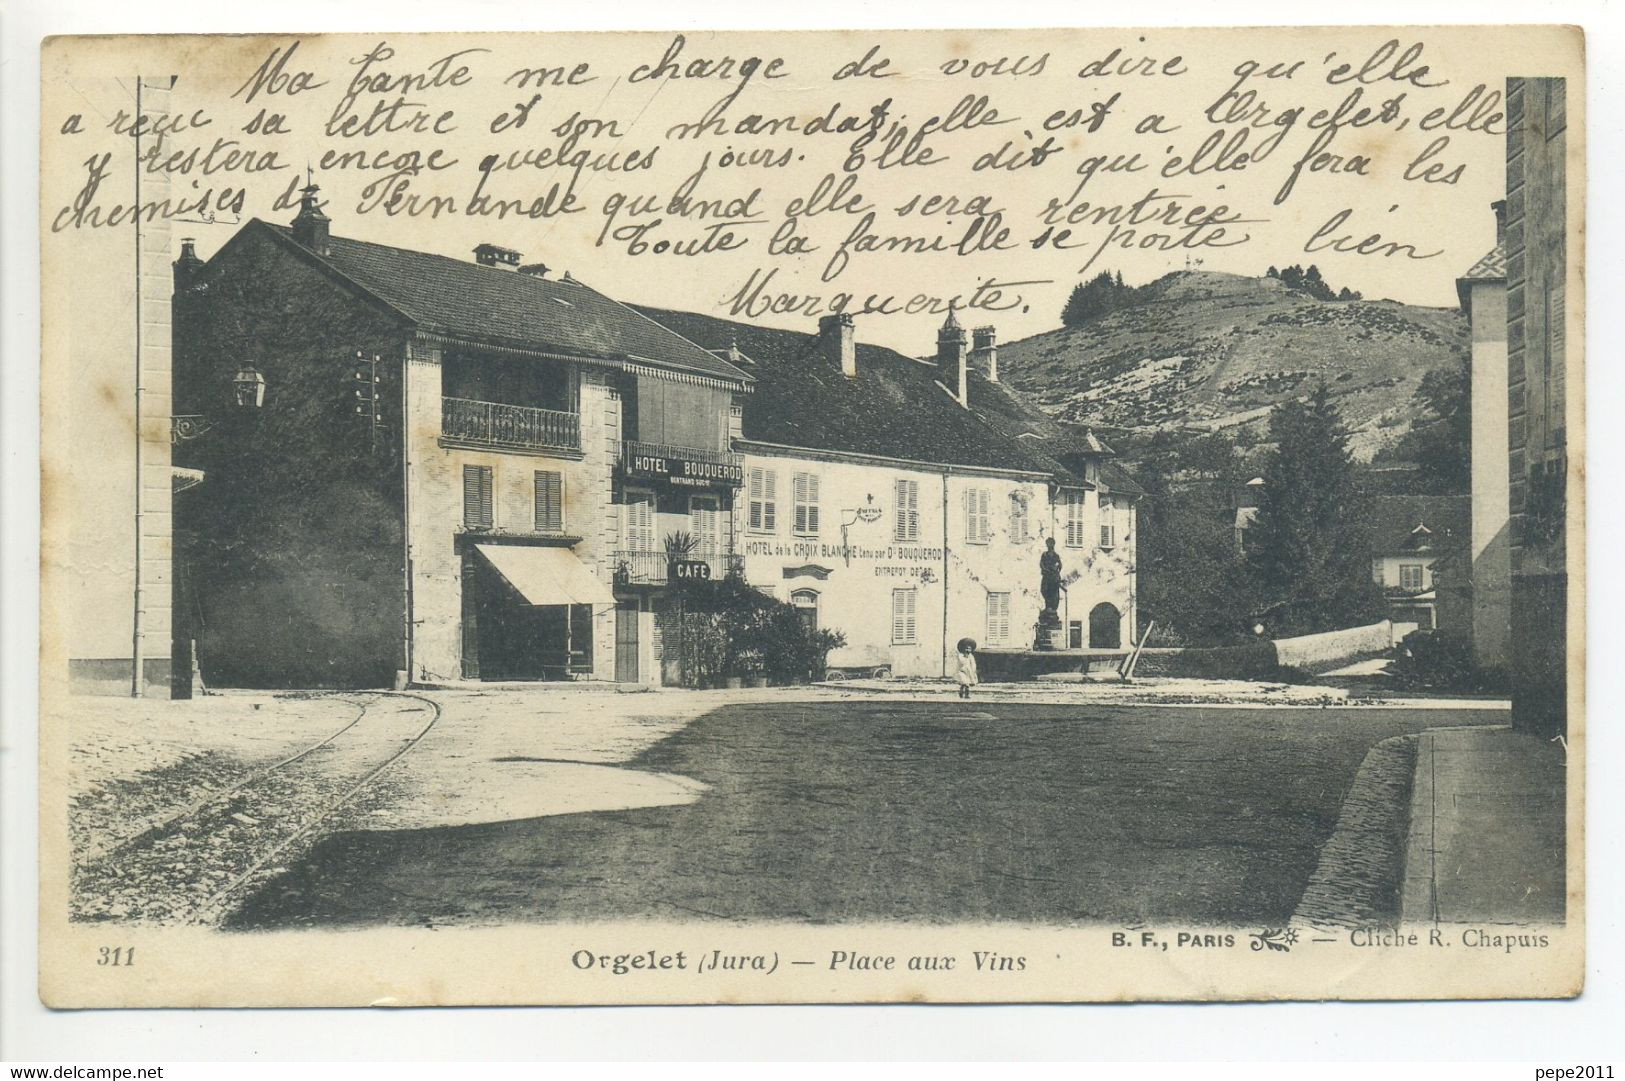 Ma tante me charge de vous dire qu'elle
a reçu sa lettre et son mandat, elle est a Orgelet, elle
y restera encore quelques jours. Elle dit qu'elle fera les
chemises de Fernande quand elle sera rentrée
Toute la famille se porte bien
Marguerite.
HOTEL BOUQUEROD
BERTRAND SUCR
CAFÉ
HOTEL de la CROIX BLANCHE tenu par D. BOUQUEROD
ENTREPOT DE SEL
311
Orgelet (Jura) — Place aux Vins
B. F., PARIS — Cliché R. Chapuis
pepe2011